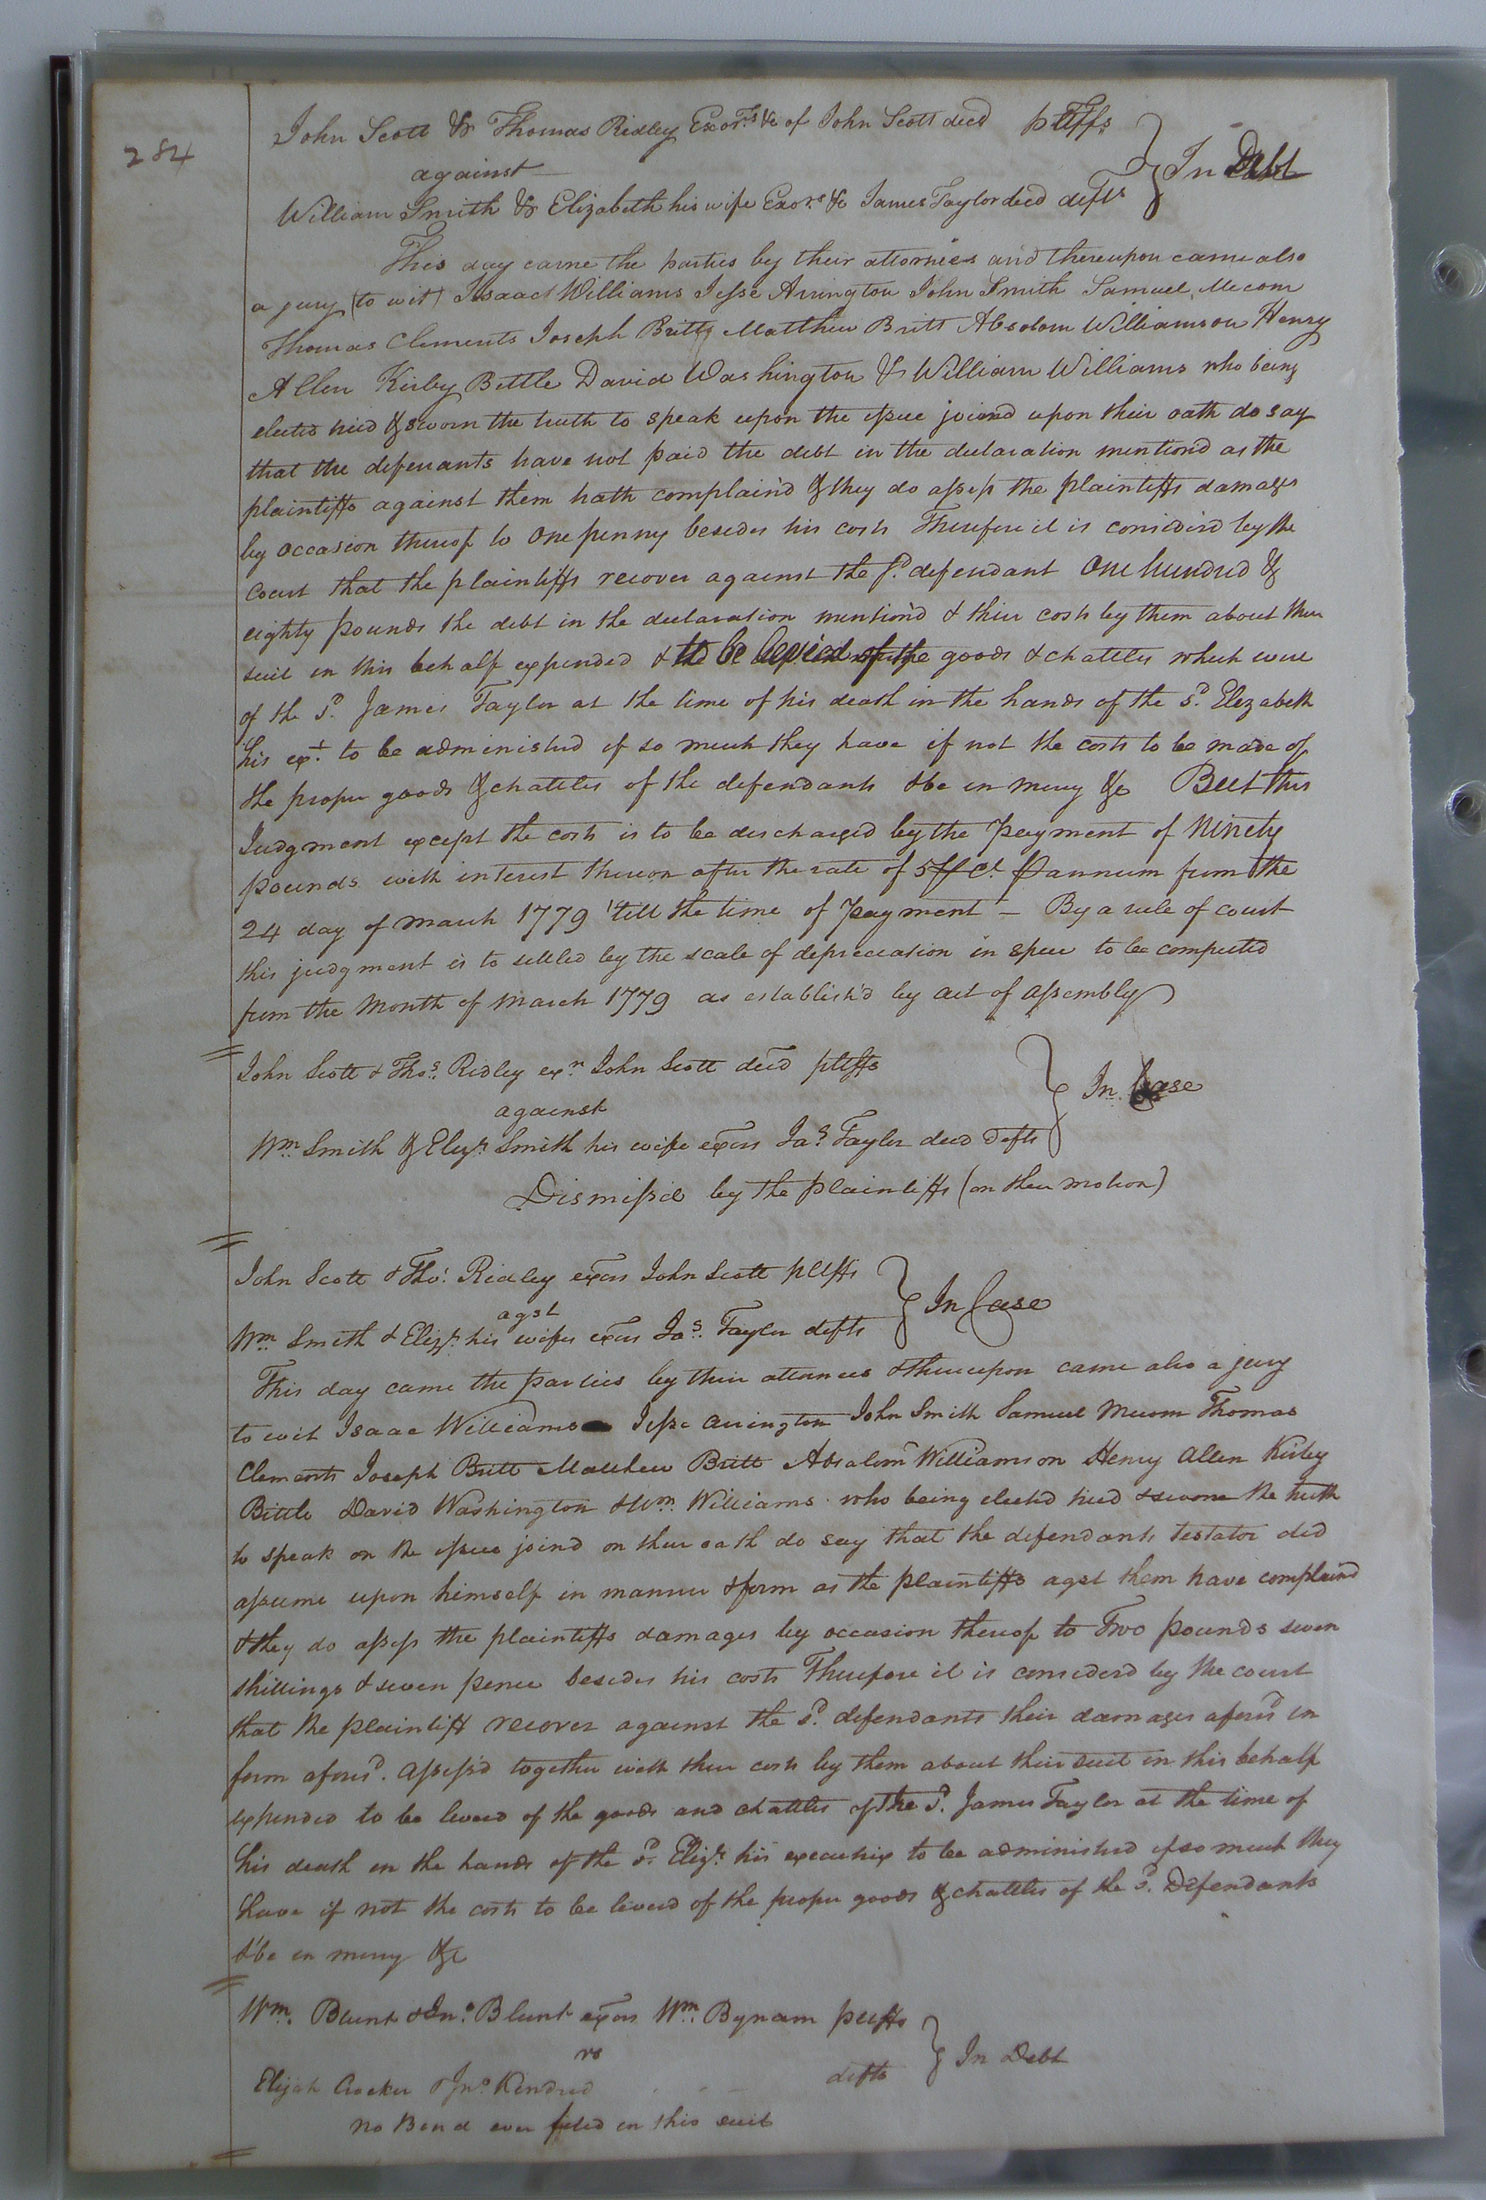 284
John Scott & Thomas Ridley Exors &c of John Scott decd pltffs
against
In Debt
William Smith & Elizabeth his wife Exors &c James Taylor decd defts
This day came the parties by their attornies and thereupon came also
a jury (to wit) Isaac Williams Jesse Arrington John Smith Samuel Mecom
Thomas Clements Joseph Britt Matthew Britt Absolom Williamson Henry
Allen Kirby Bittle David Washington & William Williams who being
elected tried & sworn the truth to speak upon the issue joined upon their oath do say
that the defenants have not paid the debt in the declaration mentiond as the
plaintiffs against them hath complain'd & they do assess the plaintiffs damages
by occasion thereof to One penny besides his costs Therefore it is considerd by the
Court that the plaintiffs recover against the sd. defendant One hundred &
eighty pounds the debt in the declaration mention'd & their costs by them about their
suit in this behalf expended & to be levied of the goods & chattles which were
of the sd. James Taylor at the time of his death in the hands of the sd. Elezabeth
his ext. to be administred if so much they have if not the costs to be made of
the proper goods & chattles of the defendants & be in mercy &c But this
Judgment except the costs is to be discharged by the Payment of Ninety
pounds with interest thereon after the rate of 5 P Ct. P annum from the
24 day of march 1779 'till the time of Payment – By a rule of court
this judgment is to settled by the scale of depreciation in specie to be computed
from the Month of March 1779 as establish'd by act of assembly
John Scott & Thos. Ridley exrs John Scott decd pltffs
against
In Case
Wm. Smith & Elizr. Smith his wife exors Jas. Taylor decd Defts
Dismiss'd by the plaintiffs (on their motion)
John Scott & Thos. Ridley exors John Scott pltffs
agst
In Case
Wm. Smith & Elizr. his wife exors Jas. Taylor defts
This day came the parties by their attornies & thereupon came also a jury
to wit Isaac Williams Jesse Arrington John Smith Samuel Mecom Thomas
Clements Joseph Britt Matthew Britt Absalom Williamson Henry Allen Kirby
Bittle David Washington & Wm. Williams who being elected tried & sworn the truth
to speak on the issue joind on their oath do say that the defendants testator did
assume upon himself in manner & form as the plaintiffs agst them have complaind
& they do assess the plaintiffs damages by occasion thereof to Two pounds seven
shillings & seven pence besides his costs Therefore it is considerd by the court
that the plaintiff recover against the sd. defendants their damages aforesd in
form aforesd. assess'd together with their costs by them about their suit in this behalf
expended to be levied of the goods and chattles of the sd. James Taylor at the time of
his death in the hands of the sd. Elizr. his executrix to be administred if so much they
have if not the costs to be levied of the proper goods & chattles of the sd. Defendants
& be in mercy &c
Wm. Blunt & Jno. Blunt exors Wm. Bynam pltffs
vs
In Debt
Elijah Crocker & Jno Kindred defts
No Bond ever filed in this suit